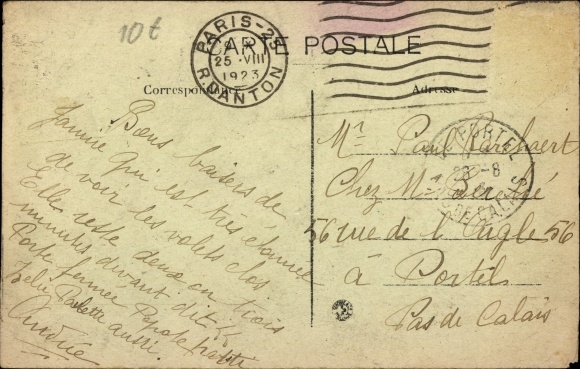 10 €
PARIS-25
25 · VIII
1923
R. DANTON
CARTE POSTALE
Correspondance
Adresse
Bons baisers de
Jannie qui est très étonnée
de voir les volets clos
Elle reste deux ou trois
minutes devant dit
Porte fermée Papote partie
Zelie Paulette aussi.
Andrée
PORTEL
-8
Mr Paul
Chez Mme
56 rue de l'Angle 56
à Portel
Pas de Calais